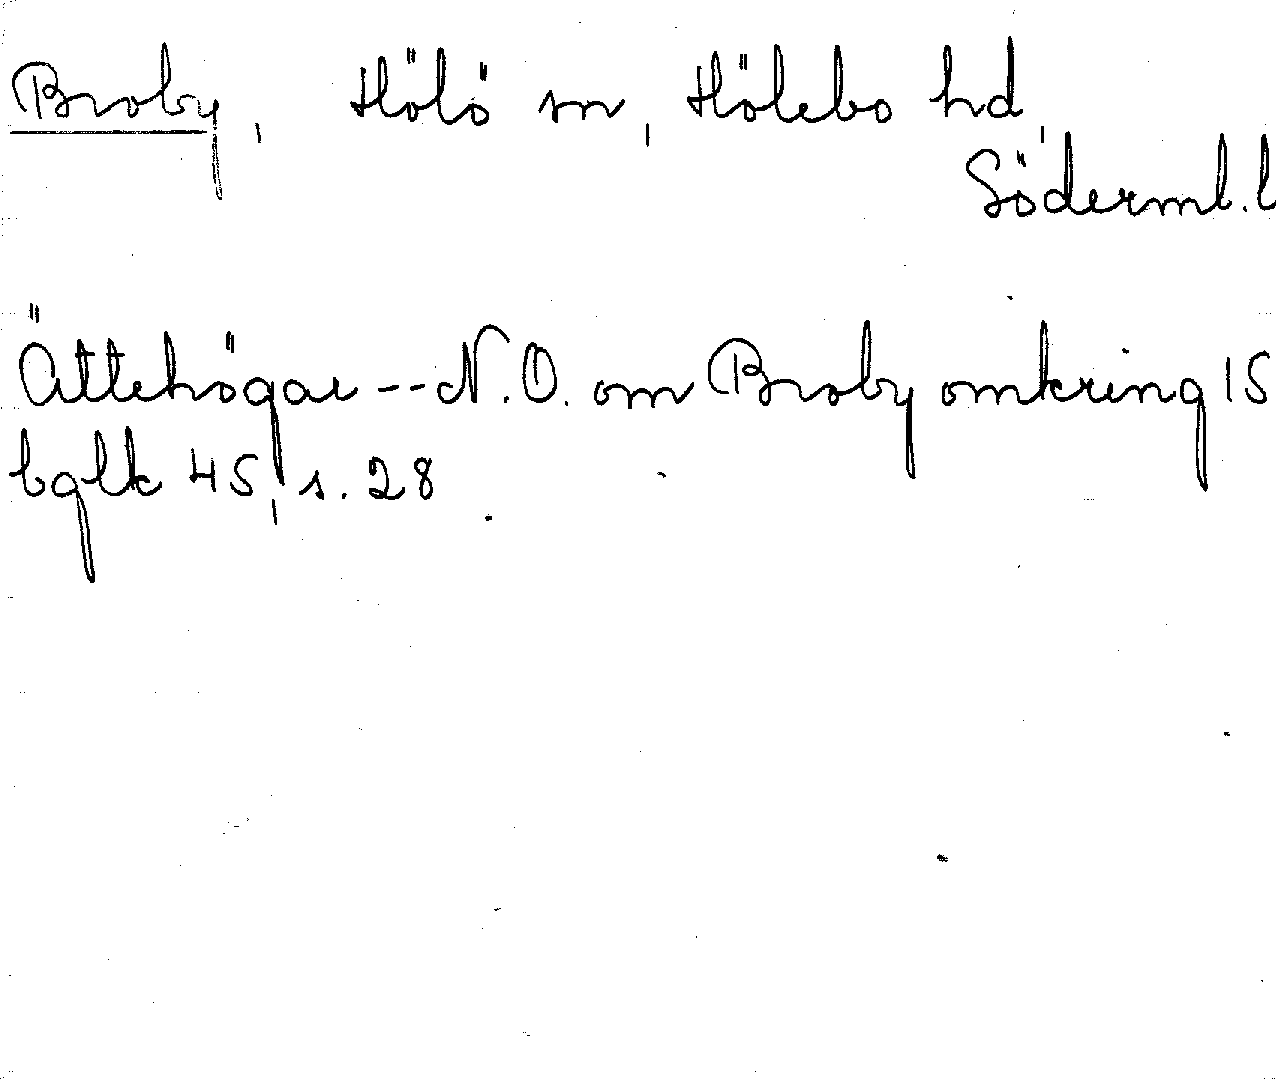 Broby, Hölö sn, Hölebo hd,
Söderml. l
Ättehögar -- N.O. om Broby omkring 15
bglk 45, s. 28